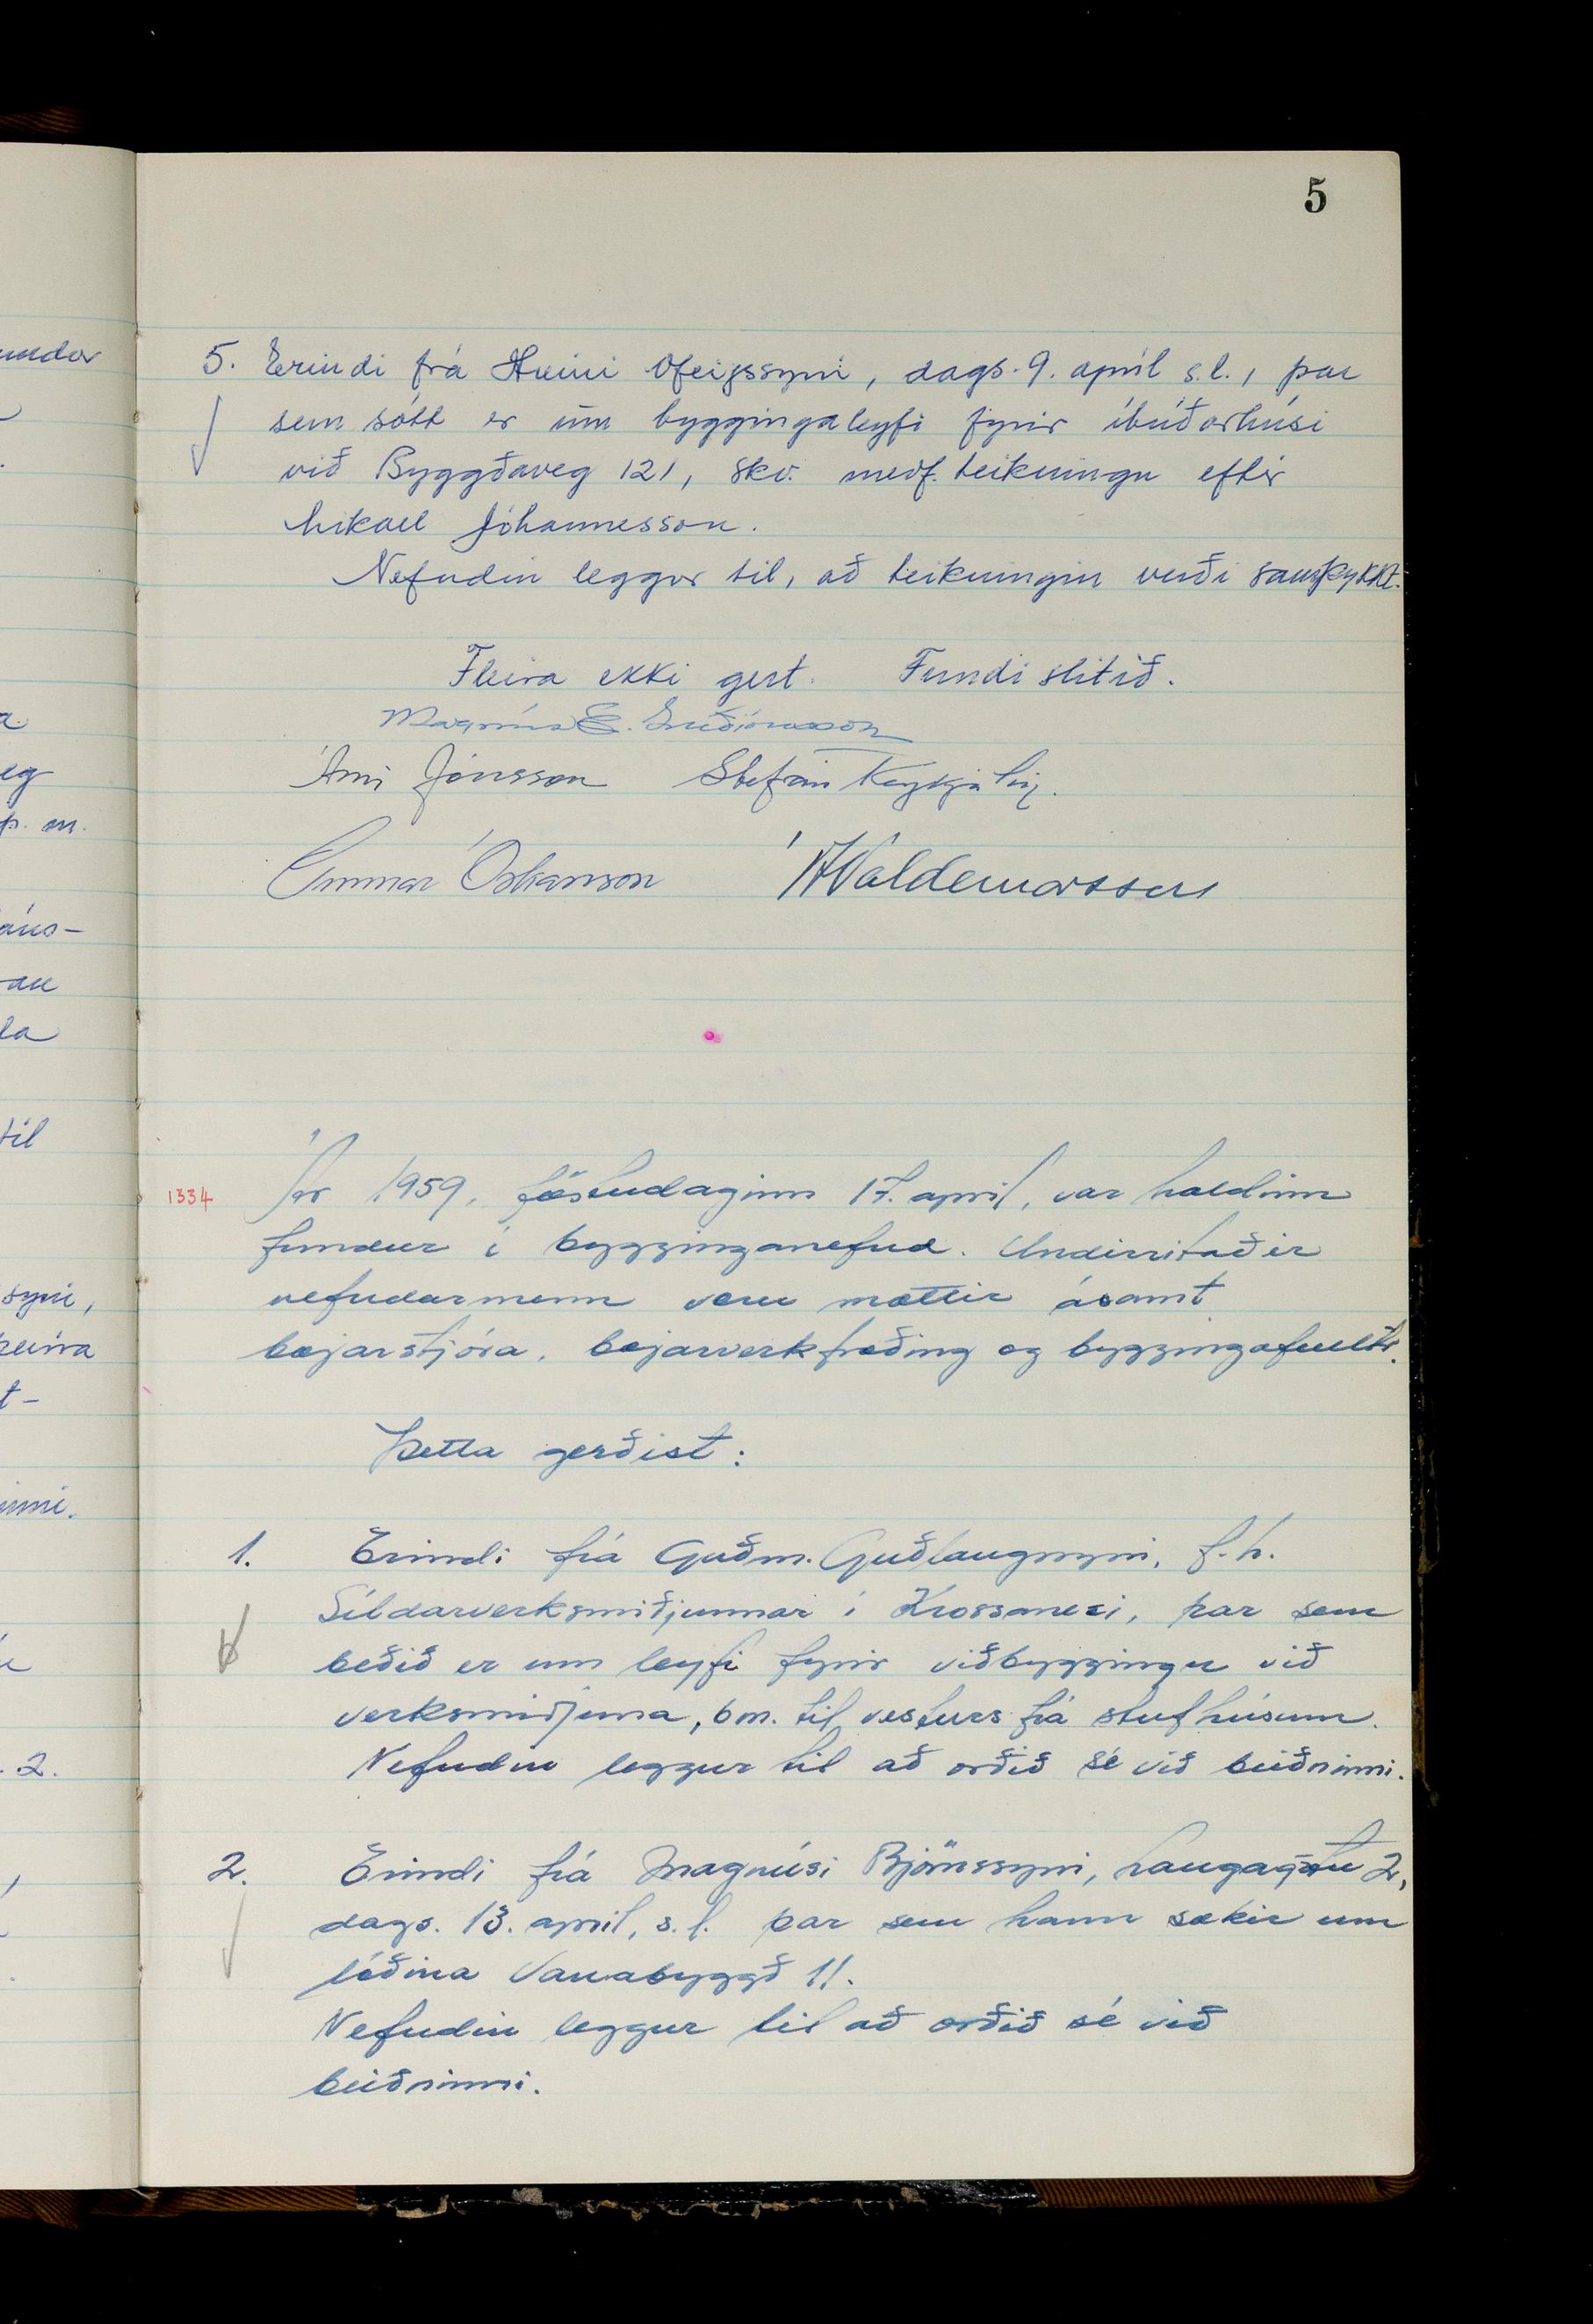 5
5. Erindi frá Hreini Ófeigssyni, dags. 9. apríl s.l., þar
sem sótt er um byggingaleyfi fyrir íbúðarhúsi
við Byggðaveg 121, skv. medf. teikningu eftir
Mikael Jóhannesson.
Nefndin leggur til, að teikningin verði samþykkt.
Fleira ekki gert. Fundi slitið.
Magnús E. Guðjónsson
Árni Jónsson Stefán Reykjalín.
Gunnar Óskarsson Á Valdemarsson
1334 Ár 1959, föstudaginn 17. apríl, var haldinn
fundur í bygginganefnd. Undirritaðir
nefndarmenn voru mættir ásamt
bæjarstjóra, bæjarverkfræðing og byggingafulltr.
Þetta gerðist:
1. Erindi frá Guðm. Guðlaugssyni, f.h.
Síldarverksmiðjunnar í Krossanesi, þar sem
beðið er um leyfi fyrir viðbyggingu við
verksmiðjuna, 6m. til vesturs frá
Nefndin leggur til að orðið sé við beiðninni.
2. Erindi frá Magnúsi Björnssyni, Laugagötu 2,
dags. 13. apríl, s.l. þar sem hann sækir um
lóðina Vanabyggð 11.
Nefndin leggur til að orðið sé við
beiðninni.